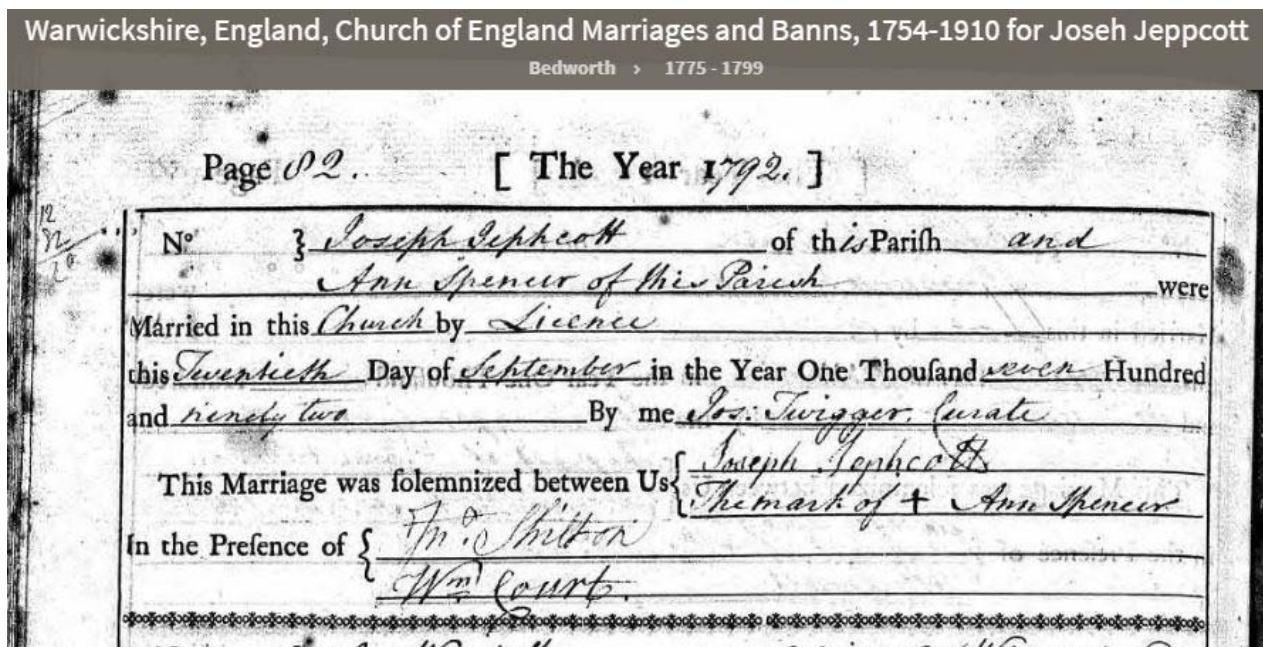 Warwickshire, England, Church of England Marriages and Banns, 1754-1910 for Joseh Jeppcott
Bedworth › 1775 - 1799
Page 82. [ The Year 1792. ]
12
Nº } Joseph Jephcott of this Pariſh and
Ann Spencer of this Parish were
Married in this Church by Licence
this Twentieth Day of September in the Year One Thouſand seven Hundred
and ninety two By me Jos: Twigger. Curate
This Marriage was ſolemnized between Us { Joseph Jephcott
The mark of + Ann Spencer
In the Preſence of { Jnº. Shilton
Wm Court.